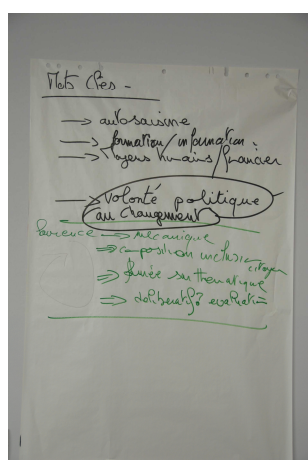 Mots clés -
→ autosaisine
→ formation/information.
→ Moyens humains/financier
→ volonté politique
au changement
→ mécanique
⇒ composition inclusion
citoyen
⇒ thématique
⇒ délibératif? évaluation